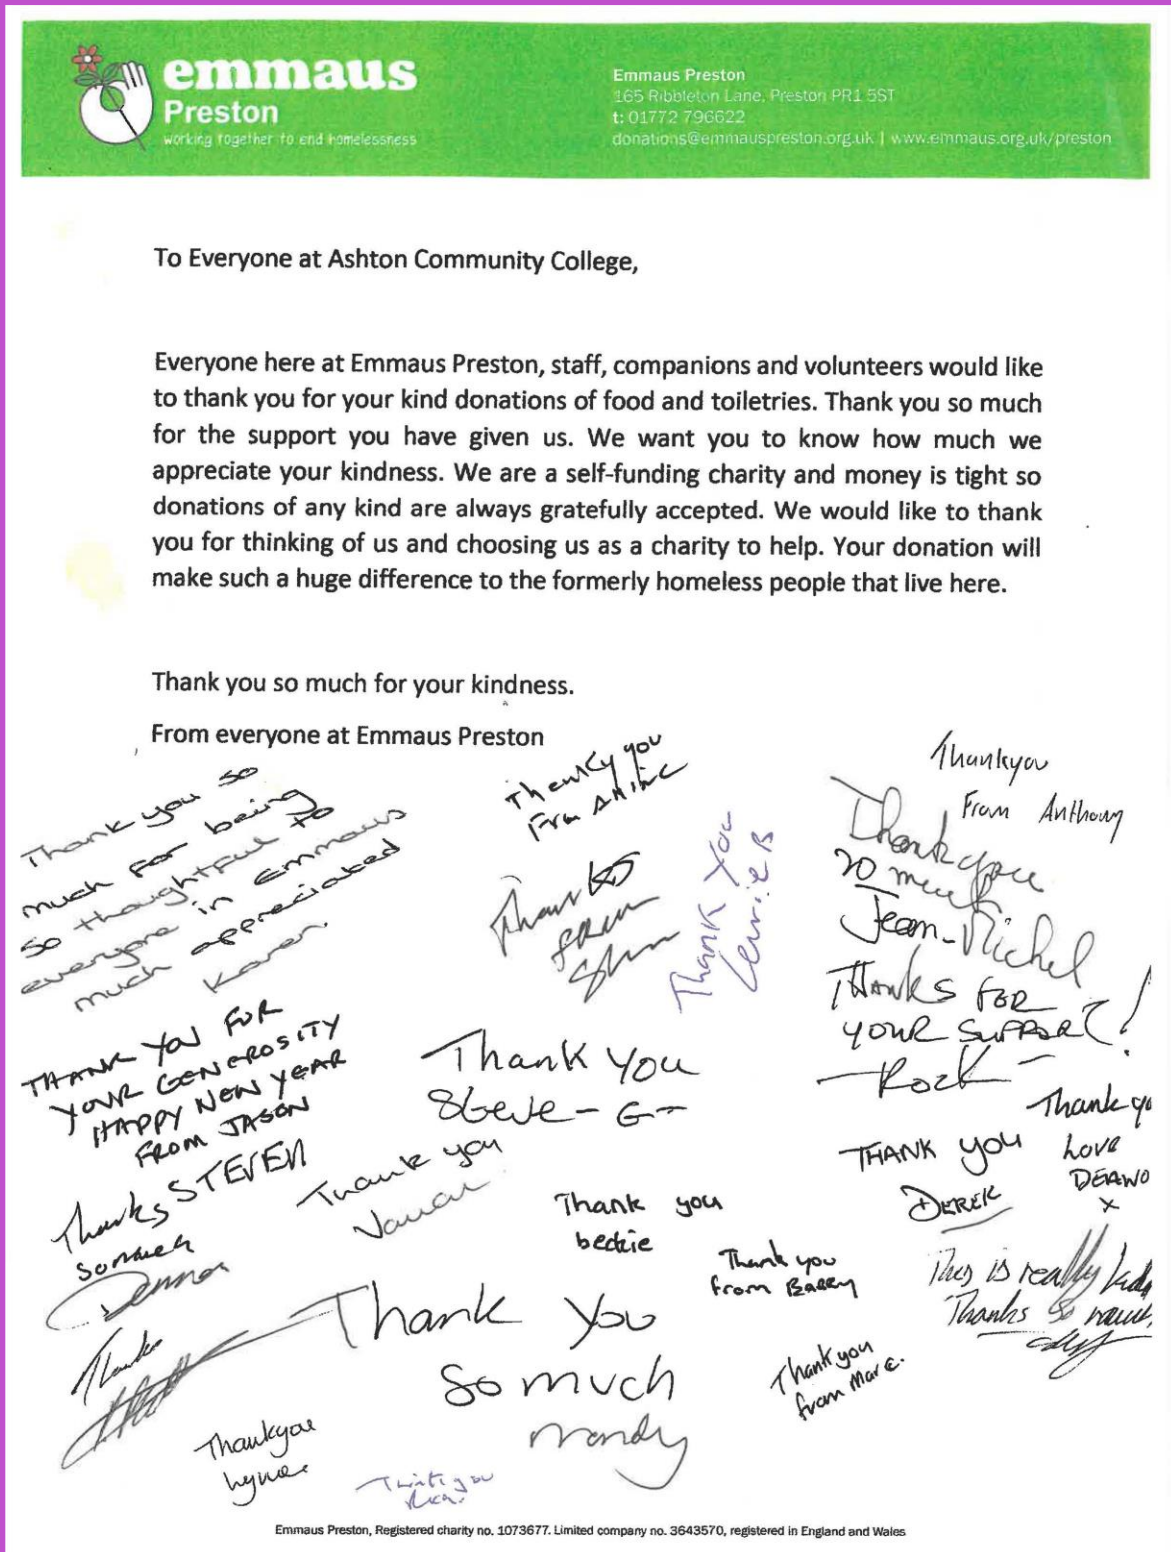 emmaus
Preston
working together to end homelessness
Emmaus Preston
165 Ribbleton Lane, Preston PR1 5ST
t: 01772 796622
donations@emmauspreston.org.uk | www.emmaus.org.uk/preston
To Everyone at Ashton Community College,
Everyone here at Emmaus Preston, staff, companions and volunteers would like
to thank you for your kind donations of food and toiletries. Thank you so much
for the support you have given us. We want you to know how much we
appreciate your kindness. We are a self-funding charity and money is tight so
donations of any kind are always gratefully accepted. We would like to thank
you for thinking of us and choosing us as a charity to help. Your donation will
make such a huge difference to the formerly homeless people that live here.
Thank you so much for your kindness.
From everyone at Emmaus Preston
Thank you so
much for being
so thoughtful to
everyone in Emmaus
much appreciated
Karen.
Thankyou
From
Thanks
from
Thank You
Thankyou
From Anthony
Thank you
so much
Jean-Michel
THANKS FOR
YOUR SUPPORT!
-Rock-
THANK YOU FOR
YOUR GENEROSITY
HAPPY NEW YEAR
FROM JASON
Thank you
Steve-G-
Thanks STEVEN
so much
Thank you
Thank you
beckie
THANK YOU
DEREK
Thank yo
Love
x
Thank you
from BARRY
This is really
Thanks so
Thanks
Thank You
So much
Mandy
Thank you
from Marc.
Thankyou
Thank you
Emmaus Preston, Registered charity no. 1073677. Limited company no. 3643570, registered in England and Wales